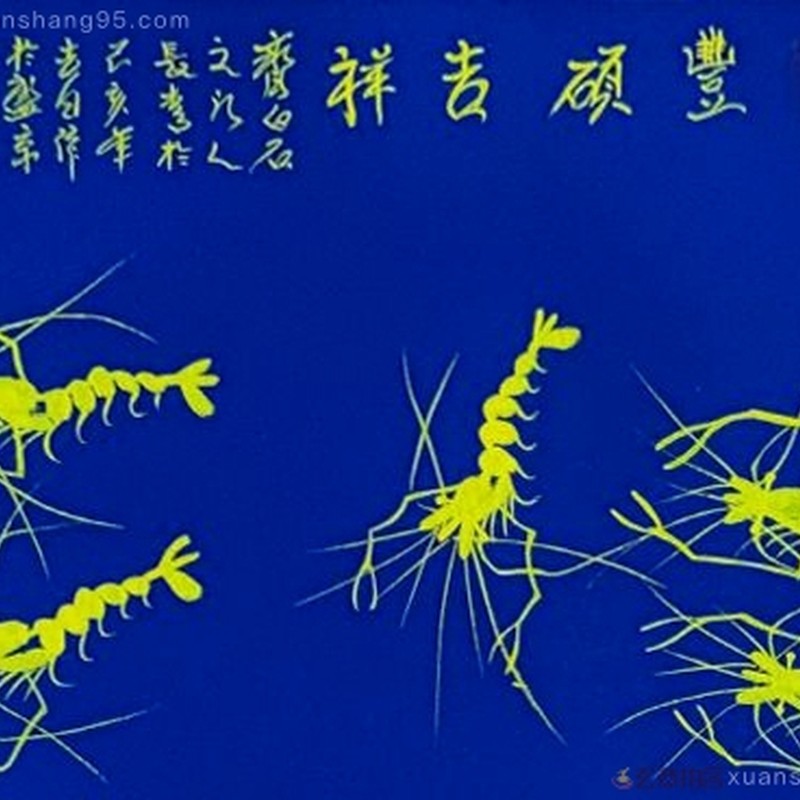 nshang95.com
豐碩吉祥
齊白石
文人
長於
己亥年
吉日作
於盛京
xuans